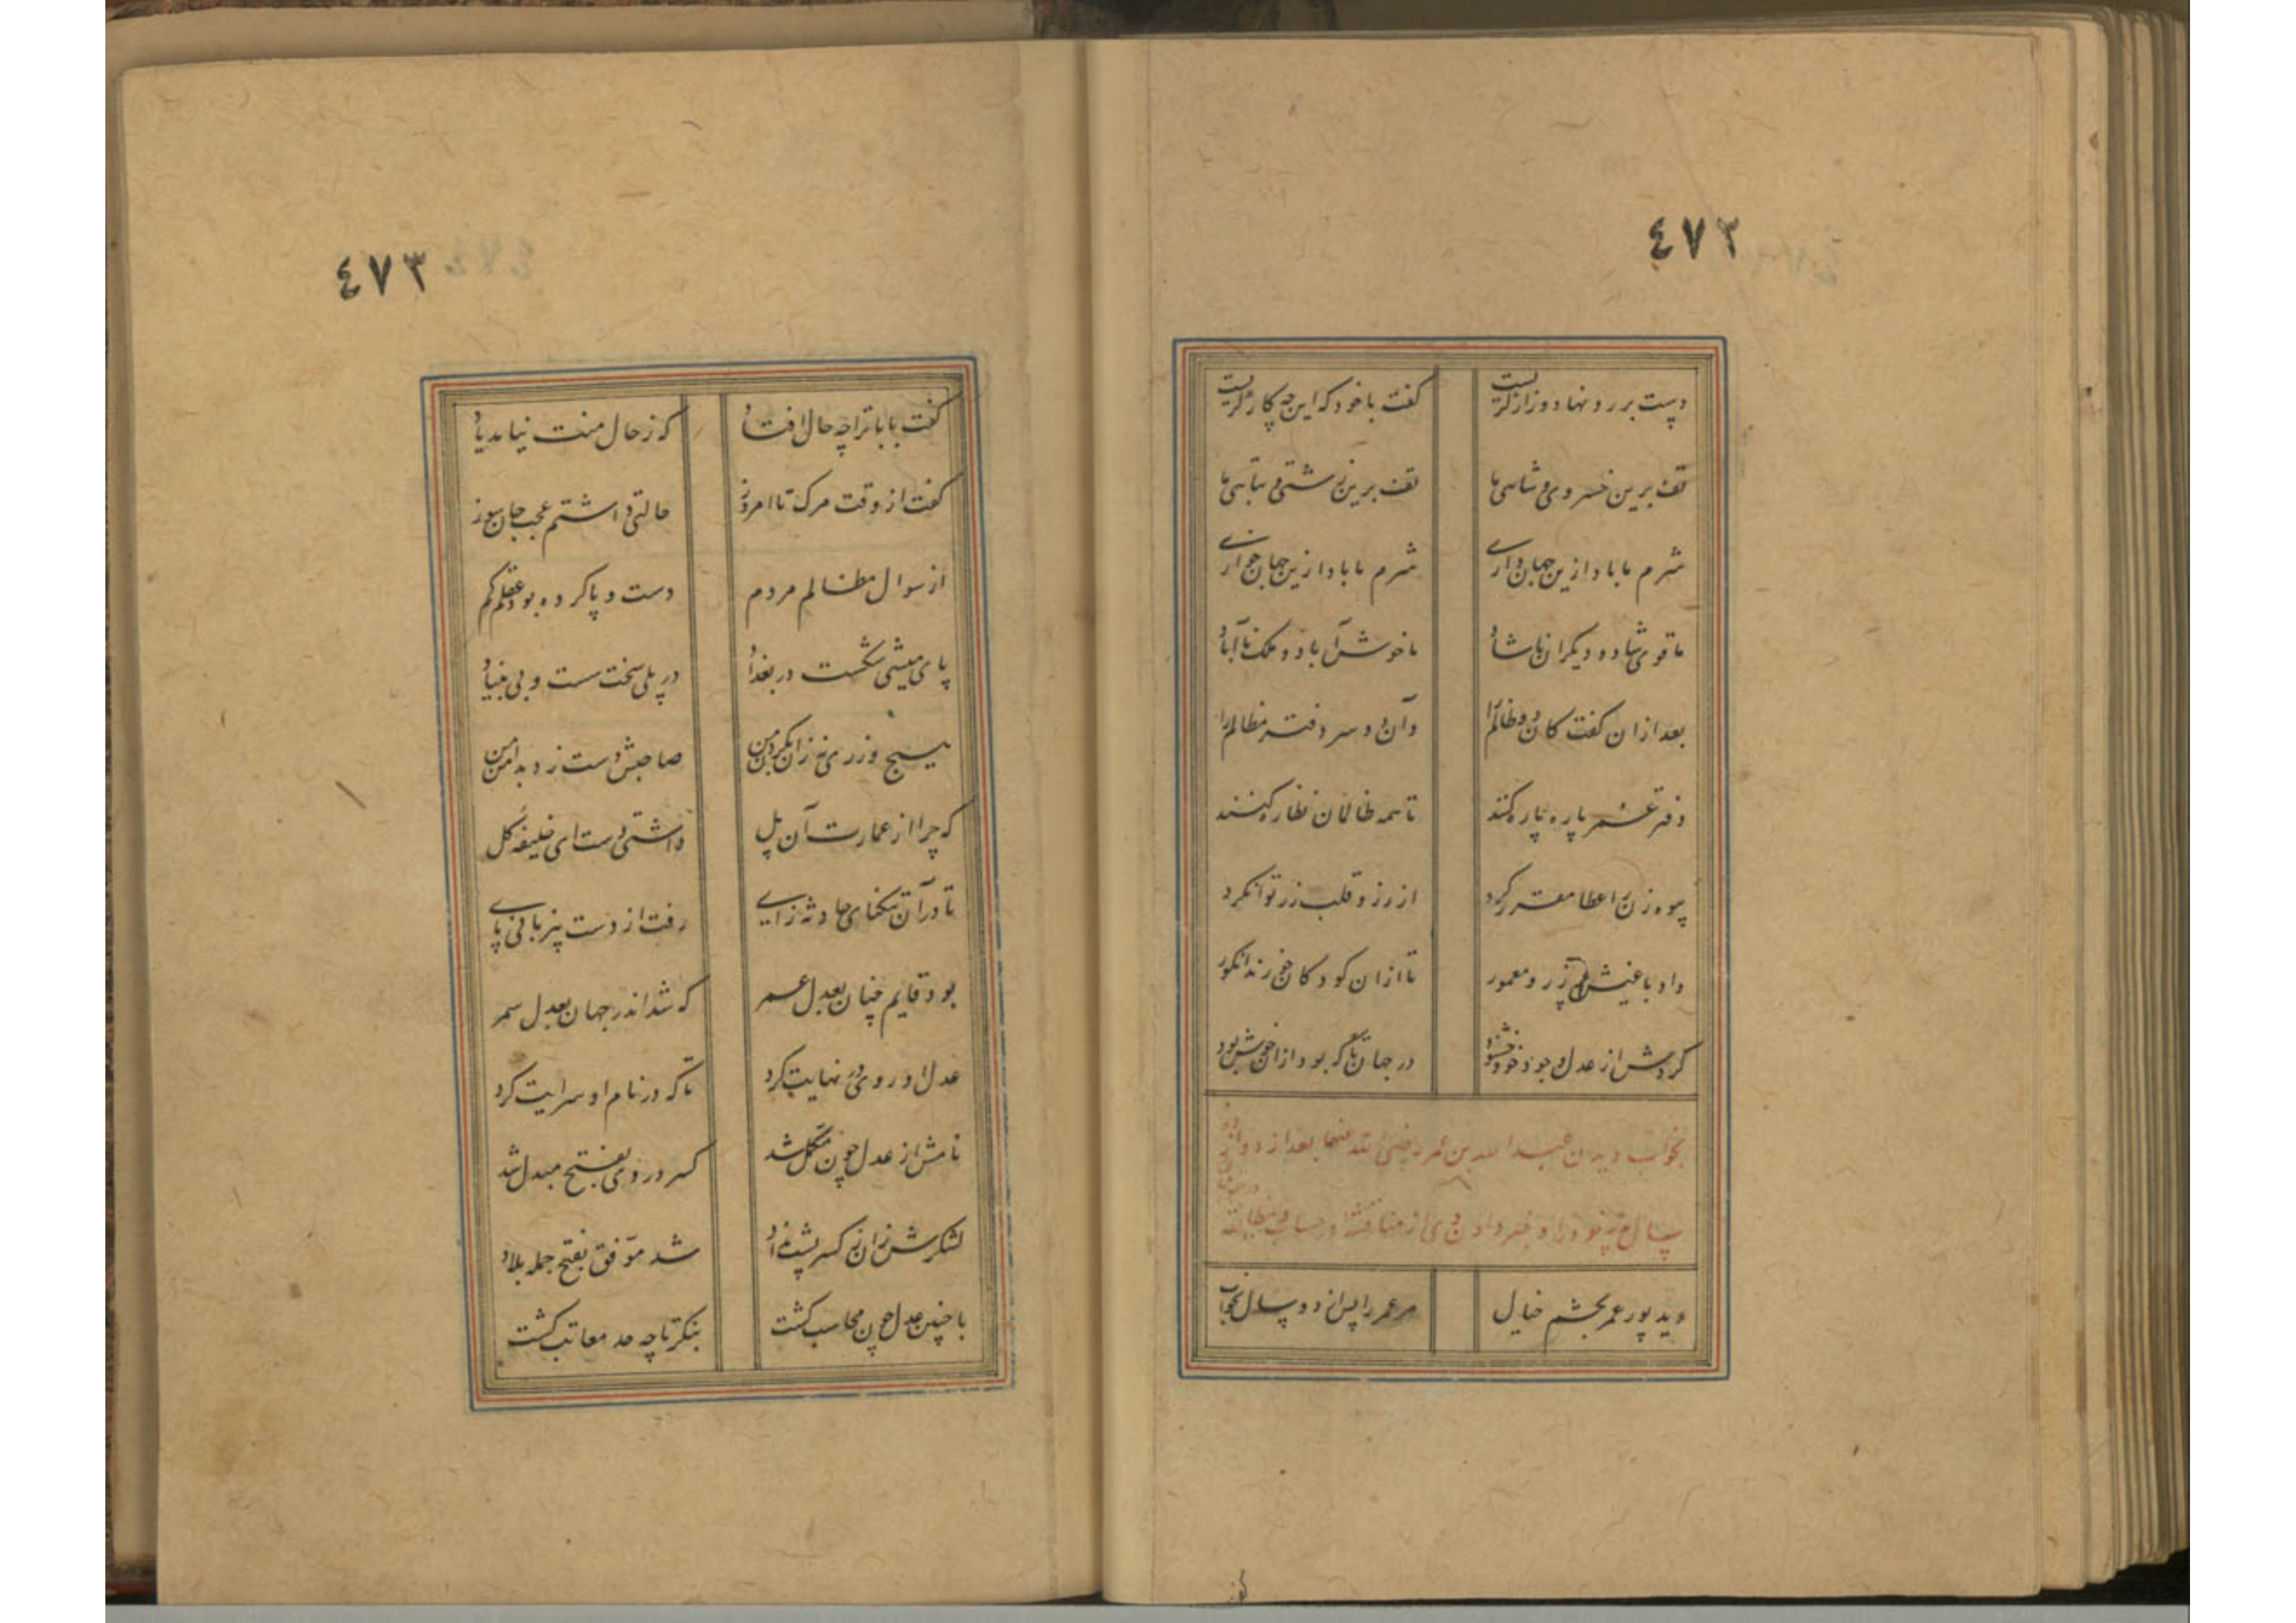 ٤٧٢
دست بر رو نهاد و زار گریست گفت با خود که این چه کار گریست
تف برین خسروی و شاهی ما تف برین زشتی و تباهی ما
شرم ما باد ازین جهان داری شرم ما باد ازین جهان خواری
ما قوی شاد و دیگران ناشاد ما خوش آباد و ملک نا آباد
بعد ازان گفت کان دو ظالم را وآن دو سر دفتر مظالم را
دفتر عمر پاره پاره کنند تا همه ظالمان نظاره کنند
پیوه زن را عطا مقرر کرد از زر و قلب زر توانگر کرد
داد باغیش پر زر و معمور تا ازان کودکان خورند انکور
کردش از عدل و جود خود خشنود در جهان تا که بود ازو خوش بود
بخواب دیدن عبد الله بن عمر رضی الله عنهما بعد از دوازده
سال پدر خود را و خبر دادن وی از مناقشه در حساب و مطالبت
دید پور عمر بچشم خیال مر عمر را پس از دو سال بخواب
٤٧٣
گفت بابا ترا چه حال افتاد که ز حال منت نیامد یاد
گفت از وقت مرک تا امروز حالتی داشتم عجب جان سوز
از سوال مظالم مردم دست و پا کرده بود عقلم کم
پای میشی شکست در بغداد در پلی سخت سست و بی بنیاد
صاحبش دست زد بدامن من
که چرا از عمارت آن پل داشتی دست ای خلیفه کل
تا در آن تنگنای حادثه زای رفت از دست بیزبانی پای
بود قایم چنان بعدل عمر که شد اندر جهان بعدل سمر
عدل او روی در نهایت کرد تا که در نام او سرایت کرد
نامش از عدل چون مکمل شد کسر در وی بفتح مبدل شد
لشکرش زان ز کسر پشت نداد شد موفق بفتح جمله بلاد
با چنین عدل چون محاسب کشت بنکر تا چه حد معاتب کشت